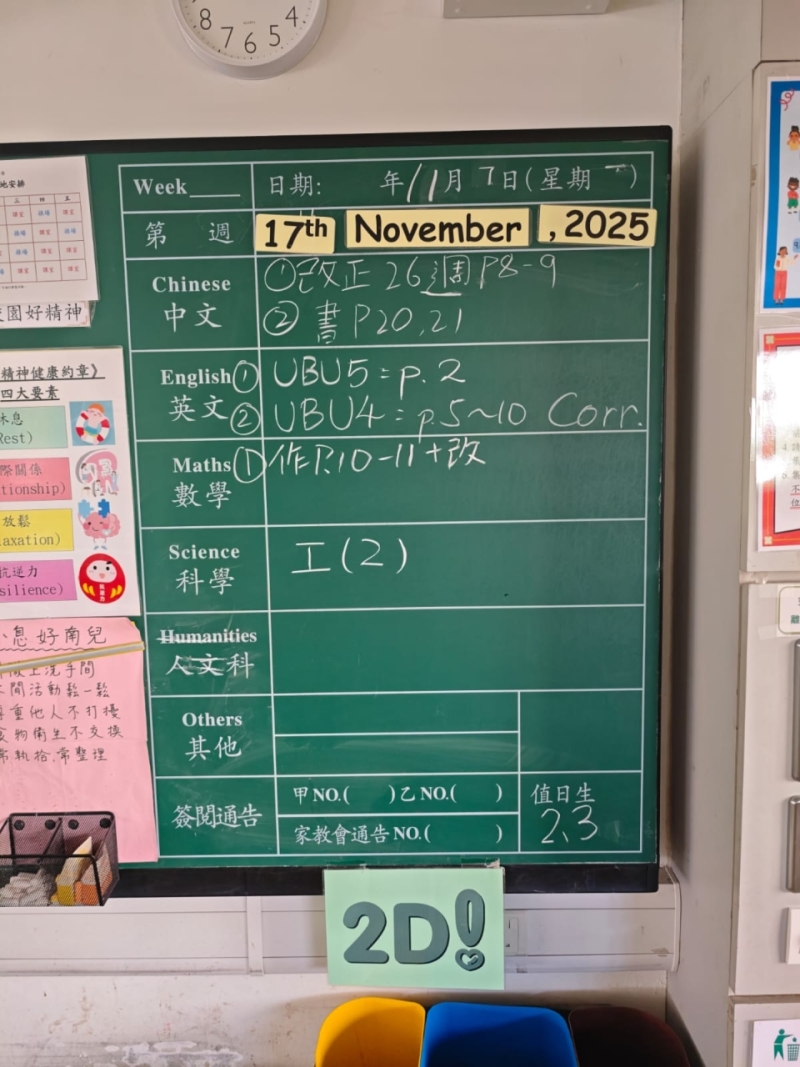 8 7 6 5 4
Week____ 日期: 年 11月 7日(星期一)
第 週 17th November , 2025
Chinese 中文 ①改正 26週 P8-9
② 書 P20,21
English 英文 ① UBU5 = p. 2
② UBU4 = p.5~10 Corr.
Maths 數學 ① 作 P.10-11+改
Science 科學 工(2)
Humanities 人文科
Others 其他
簽閱通告 甲 NO.( ) 乙 NO.( )
家教會通告 NO.( )
值日生
2、3
2D!
園好精神
精神健康約章》
四大要素
休息
Rest)
際關係
tionship)
放鬆
axation)
抗逆力
silience)
息好南兒
上洗手間
閒活動鬆一鬆
重他人不打擾
食物衛生不交換
常執拾,常整理